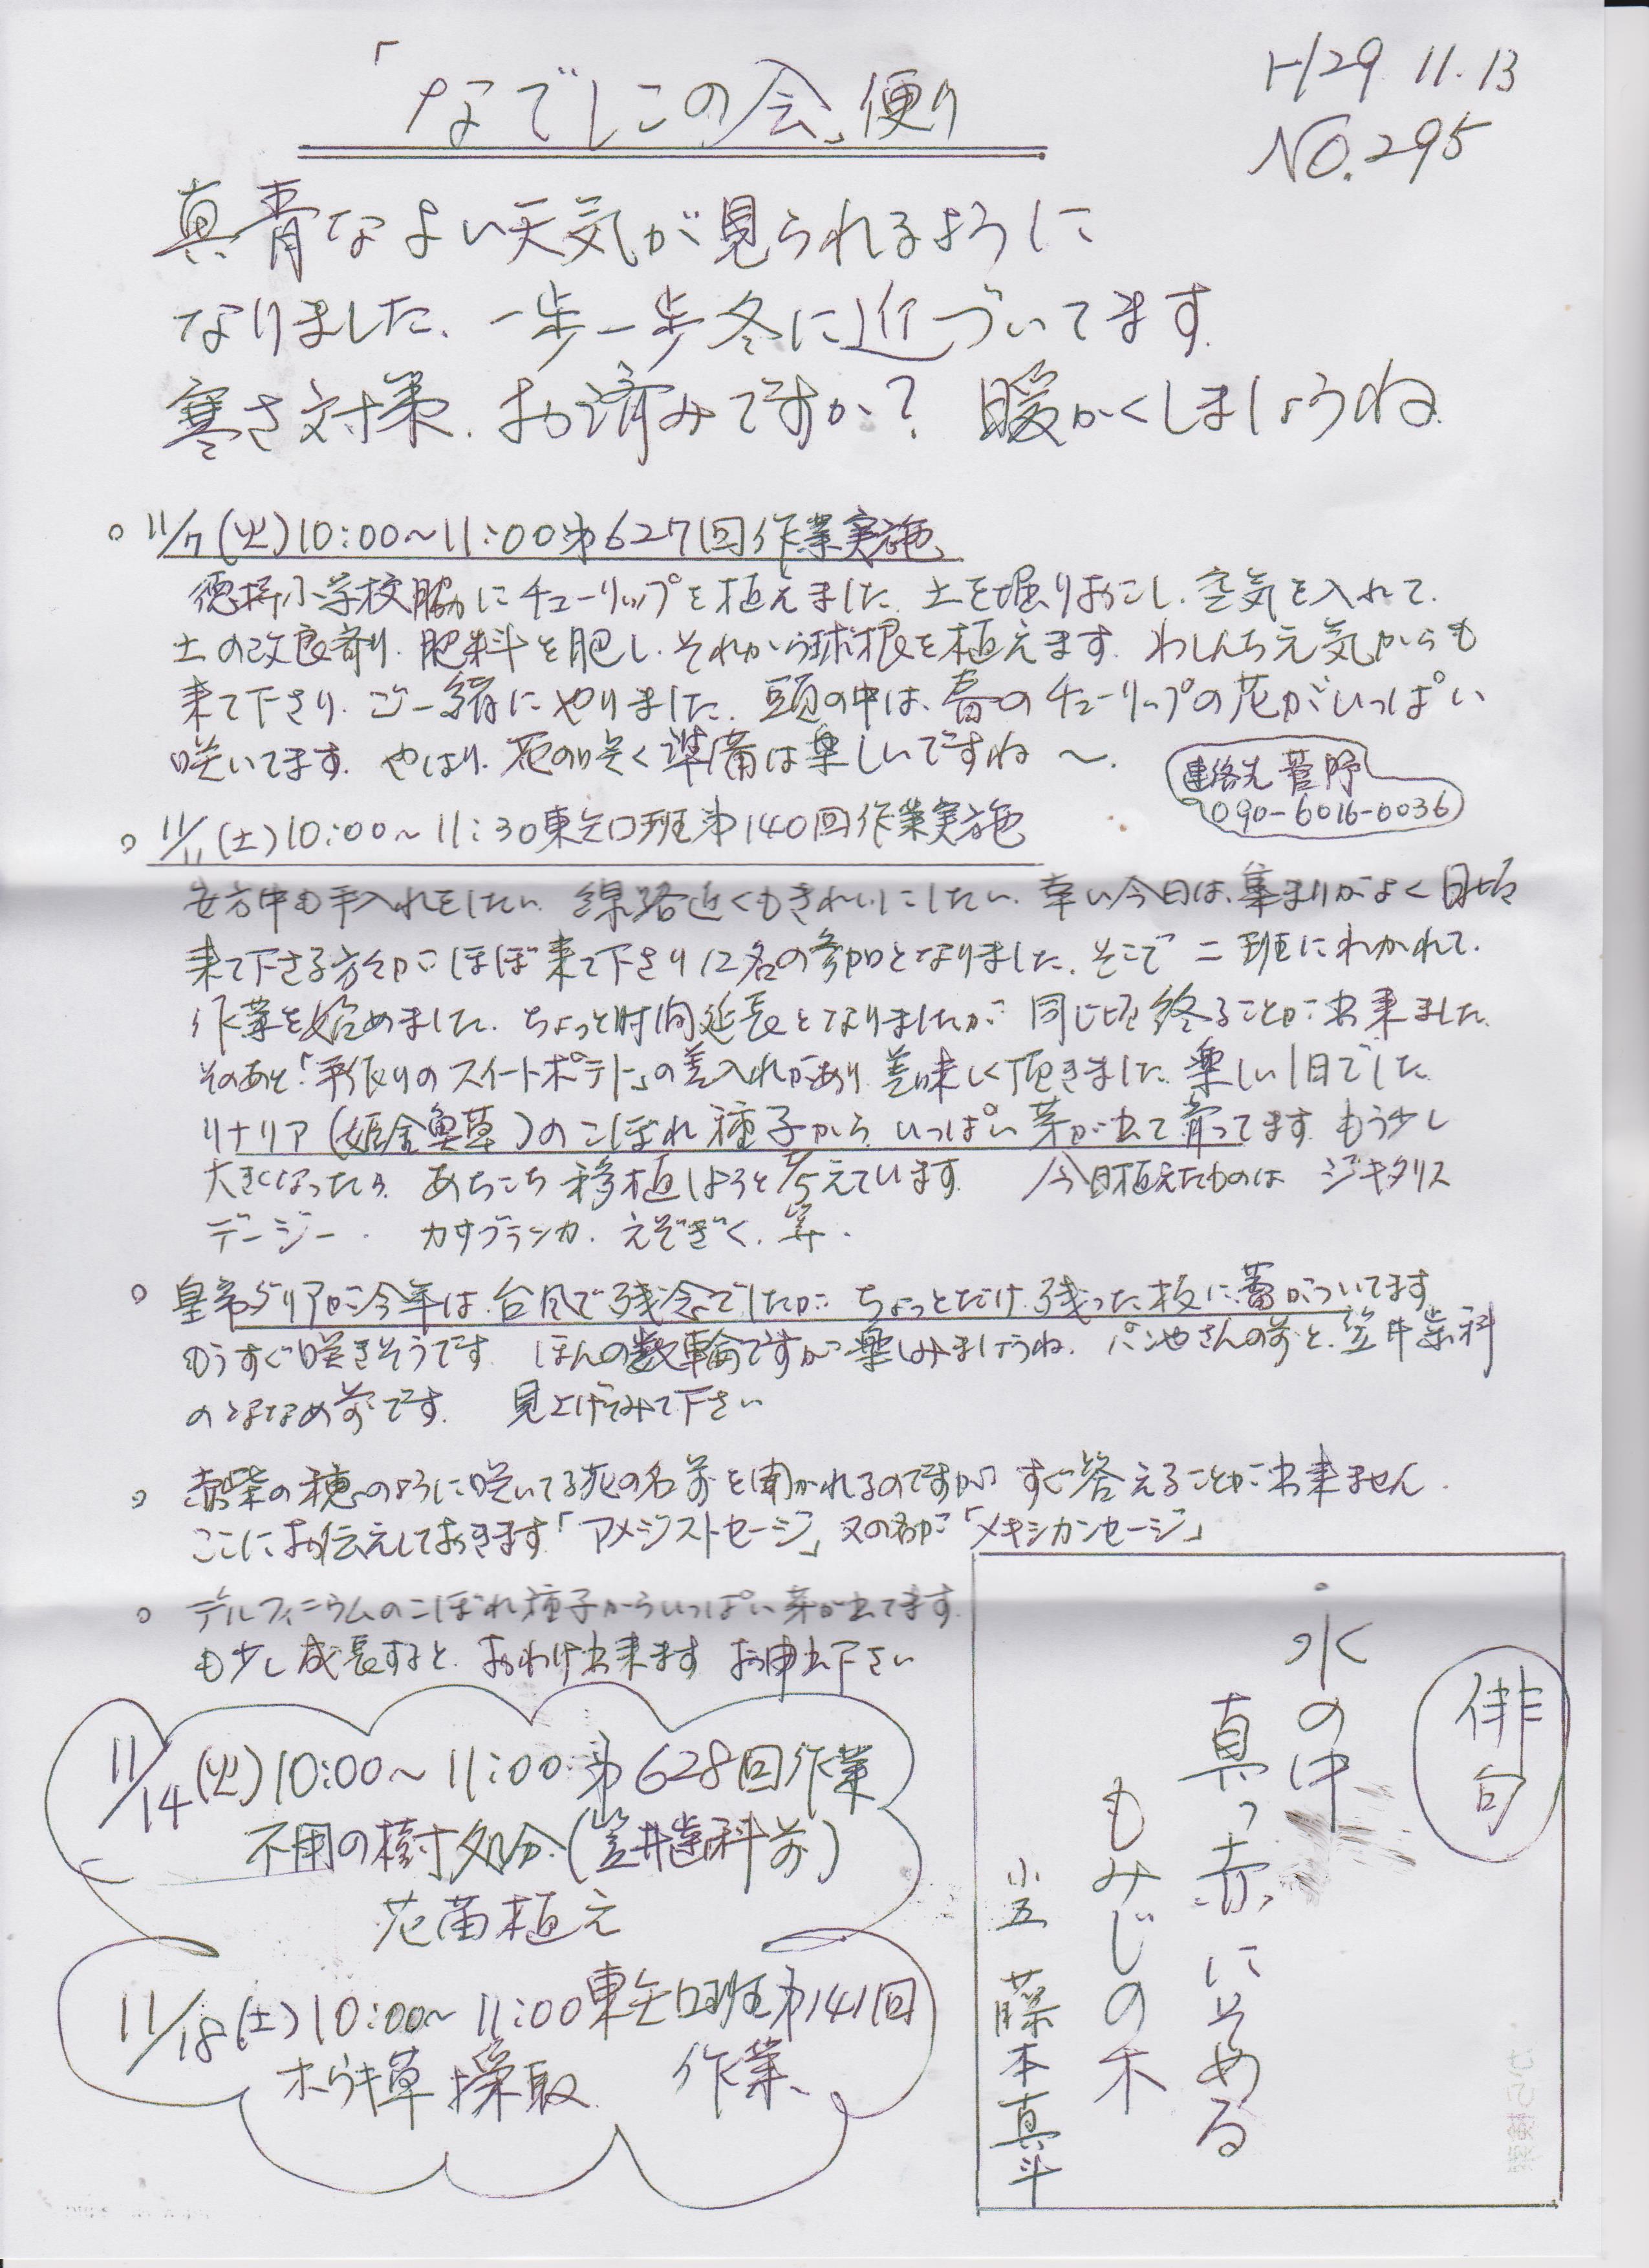 「なでしこの会」便り
H29 11.13
NO.295
真青なよい天気が見られるように
なりました、一歩一歩冬に近づいてます.
寒さ対策、お済みですか? 暖かくしましょうね.
○ 11/7(火)10:00～11:00第627回作業実施、
徳持小学校脇にチューリップを植えました. 土を堀りおこし、空気を入れて.
土の改良剤、肥料を肥し、それから球根を植えます. わしんち元気からも
来て下さり、ご一緒にやりました. 頭の中は、春のチューリップの花がいっぱい
咲いてます. やはり、花の咲く準備は楽しいですね～.
連絡先 菅野
090-6016-0036
○ 11/11(土)10:00～11:30東矢口班第140回作業実施
安方中も手入れをしたい、線路近くもきれいにしたい、幸い今日は、集まりがよく日頃
来て下さる方々が ほぼ来て下さり12名の参加となりました. そこで 二班にわかれて.
作業を始めました. ちょっと時間延長となりましたが 同じ頃終ることが出来ました.
そのあと「手作りのスイートポテト」の差入れがあり、美味しく頂きました. 楽しい1日でした.
リナリア(姫金魚草)のこぼれ種子から、いっぱい芽が出て育ってます. もう少し
大きくなったら、あちこち移植しようと考えています. 今日植えたものは ジキタリス
デージー. カサブランカ. えぞぎく. 等.
○ 皇帝ダリアが今年は台風で残念でしたが ちょっとだけ残った枝に蕾がついてます
もうすぐ咲きそうです. ほんの数輪ですが楽しみましょうね. パン屋さんの前と、笠井歯科
のななめ前です. 見上げてみて下さい
○ 赤紫の穂のように咲いてる花の名前を聞かれるのですが すぐ答えることが出来ません.
ここにお伝えしておきます「アメジストセージ」又の名が「メキシカンセージ」
○ デルフィニウムのこぼれ種子からいっぱい芽が出てます.
も少し成長すると、おわけ出来ます お申出下さい
11/14(火)10:00～11:00 第628回作業
不用の樹処分(笠井歯科前)
花苗植え
11/18(土)10:00～11:00東矢口班第141回
ホウキ草採取 作業、
俳句
水の中
真っ赤にそめる
もみじの木
小五 藤本真斗